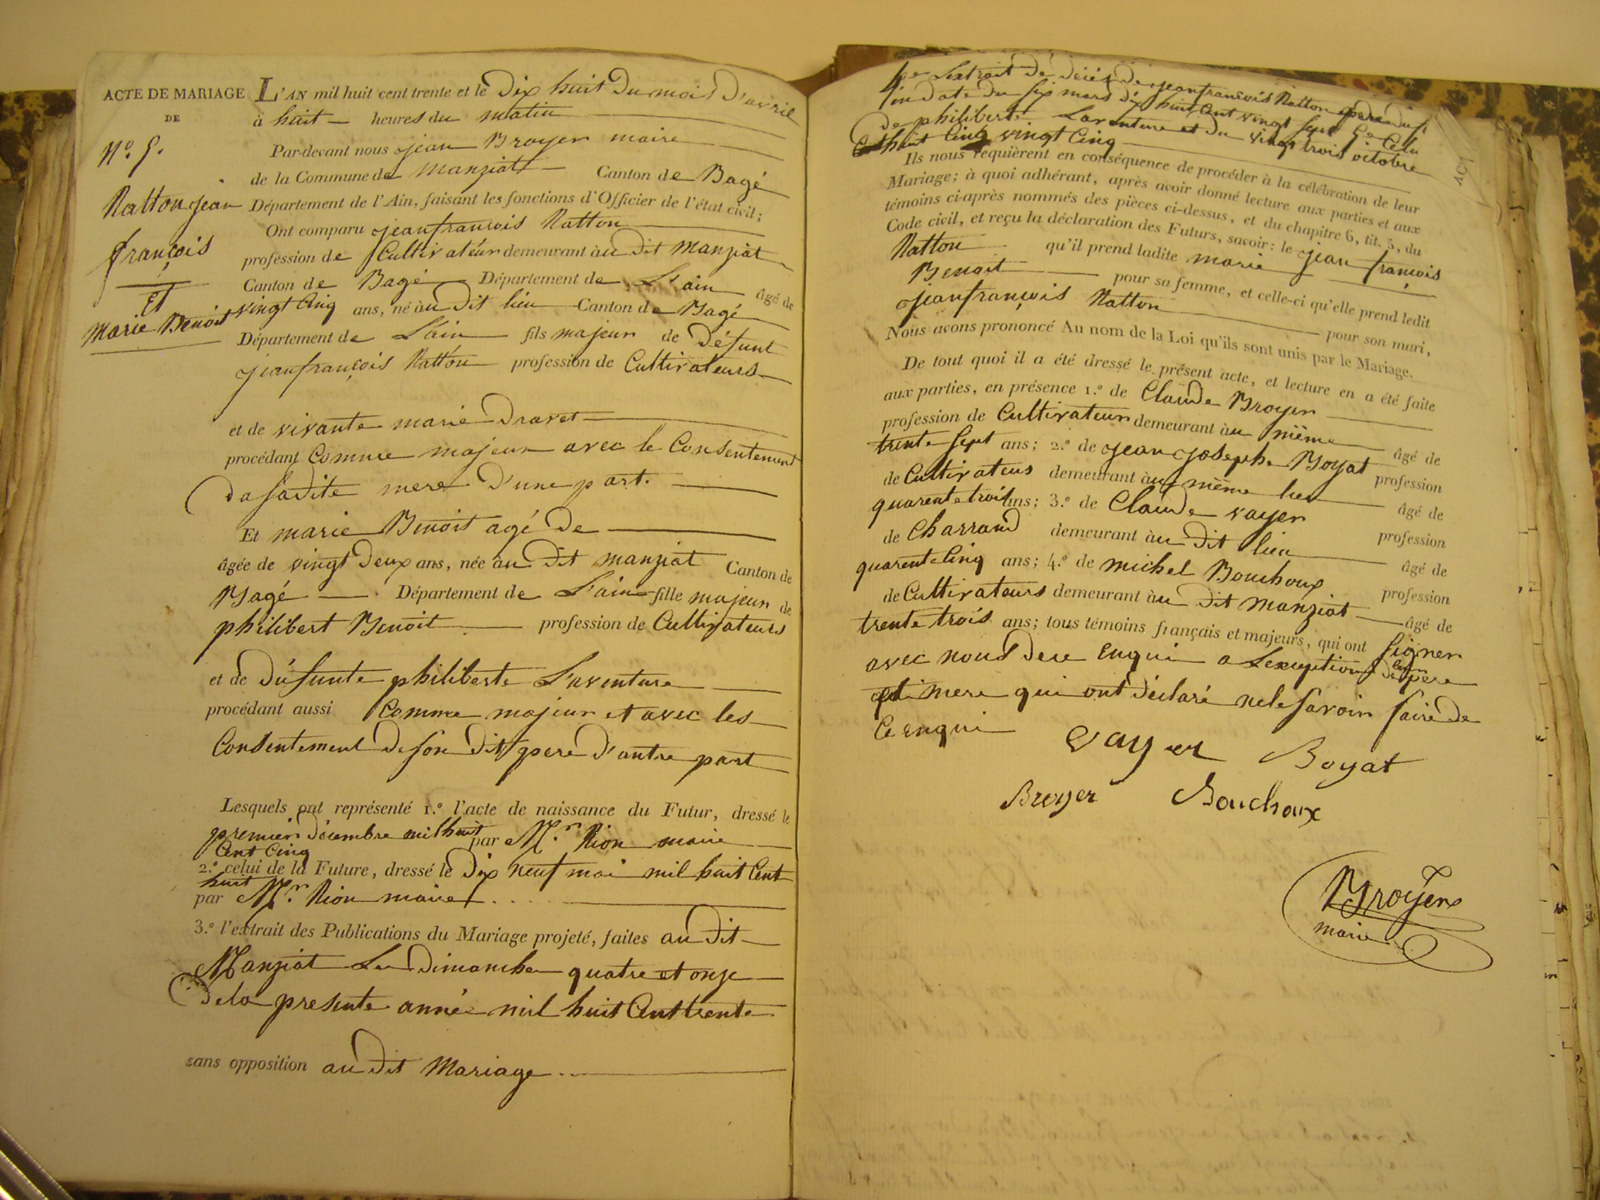 ACTE DE MARIAGE
DE
N.° 5.
Natton jean
françois
Et
marie Benoit
L'AN mil huit cent trente et le dix huit du mois d'avril
à huit heures du matin
Par-devant nous jean Broyer maire
de la Commune de Manziat Canton de Bagé
Département de l'Ain, faisant les fonctions d'Officier de l'état civil;
Ont comparu jeanfrancois Natton
profession de Cultivateur demeurant au dit Manziat
Canton de Bagé Département de L'ain âgé de
vingt Cinq ans, né au dit lieu Canton de Bagé
Département de L'ain fils majeur de défunt
jeanfrançois Natton profession de Cultivateurs
et de vivante marie Dravet
procédant Comme majeur avec le Consentement
da sadite mere d'une part.
Et marie Benoit agé de
âgée de vingt deux ans, née au dit manziat Canton de
Bagé Département de L'ain fille majeur de
philibert Benoit profession de Cultivateurs
et de défunte philiberte L'aventure
procédant aussi Comme majeur et avec les
Consentement de son dit pere d'autre part
Lesquels ont représenté 1.° l'acte de naissance du Futur, dressé le
premier décembre mil huit
Cent Cinq par Mr. Rion maire
2.° celui de la Future, dressé le dix neuf mai mil huit Cent
huit
par Mr. Rion maire
3.° l'extrait des Publications du Mariage projeté, faites au dit
Manziat Le dimanche quatre et onze
de la presente année mil huit Cent trente
sans opposition au dit Mariage
4.° L'extrait de décés de jeanfrancois Natton pere du f.
en date du six mars dix huit Cent vingt sept 5.° Celui
de philiberte Laventure et du vingt trois octobre
huit Cent vingt Cinq
Ils nous requièrent en conséquence de procéder à la célébration de leur
Mariage; à quoi adhérant, après avoir donné lecture aux parties et aux
témoins ci-après nommés des pièces ci-dessus, et du chapitre 6, tit. 5, du
Code civil, et reçu la déclaration des Futurs, savoir: le jean françois
Natton qu'il prend ladite marie
Benoit pour sa femme, et celle-ci qu'elle prend ledit
jeanfrançois Natton pour son mari,
Nous avons prononcé Au nom de la Loi qu'ils sont unis par le Mariage.
De tout quoi il a été dressé le présent acte, et lecture en a été faite
aux parties, en présence 1.° de Claude Broyer
profession de Cultivateur demeurant au même âgé de
trente sept ans; 2.° de jean joseph Boyat profession
de Cultivateurs demeurant au même lieu âgé de
quarente trois ans; 3.° de Claude vayer profession
de Charrand demeurant au dit lieu âgé de
quarente Cinq ans; 4.° de michel Bouchoux profession
de Cultivateurs demeurant au dit Manziat âgé de
trente trois ans; tous témoins français et majeurs, qui ont signer
avec nous dece Enqui a Lexeuption des père
et mere qui ont déclaré nele savoir faire de
Ce enqui
vayer Boyat
Broyer Bouchoux
Broyer
maire